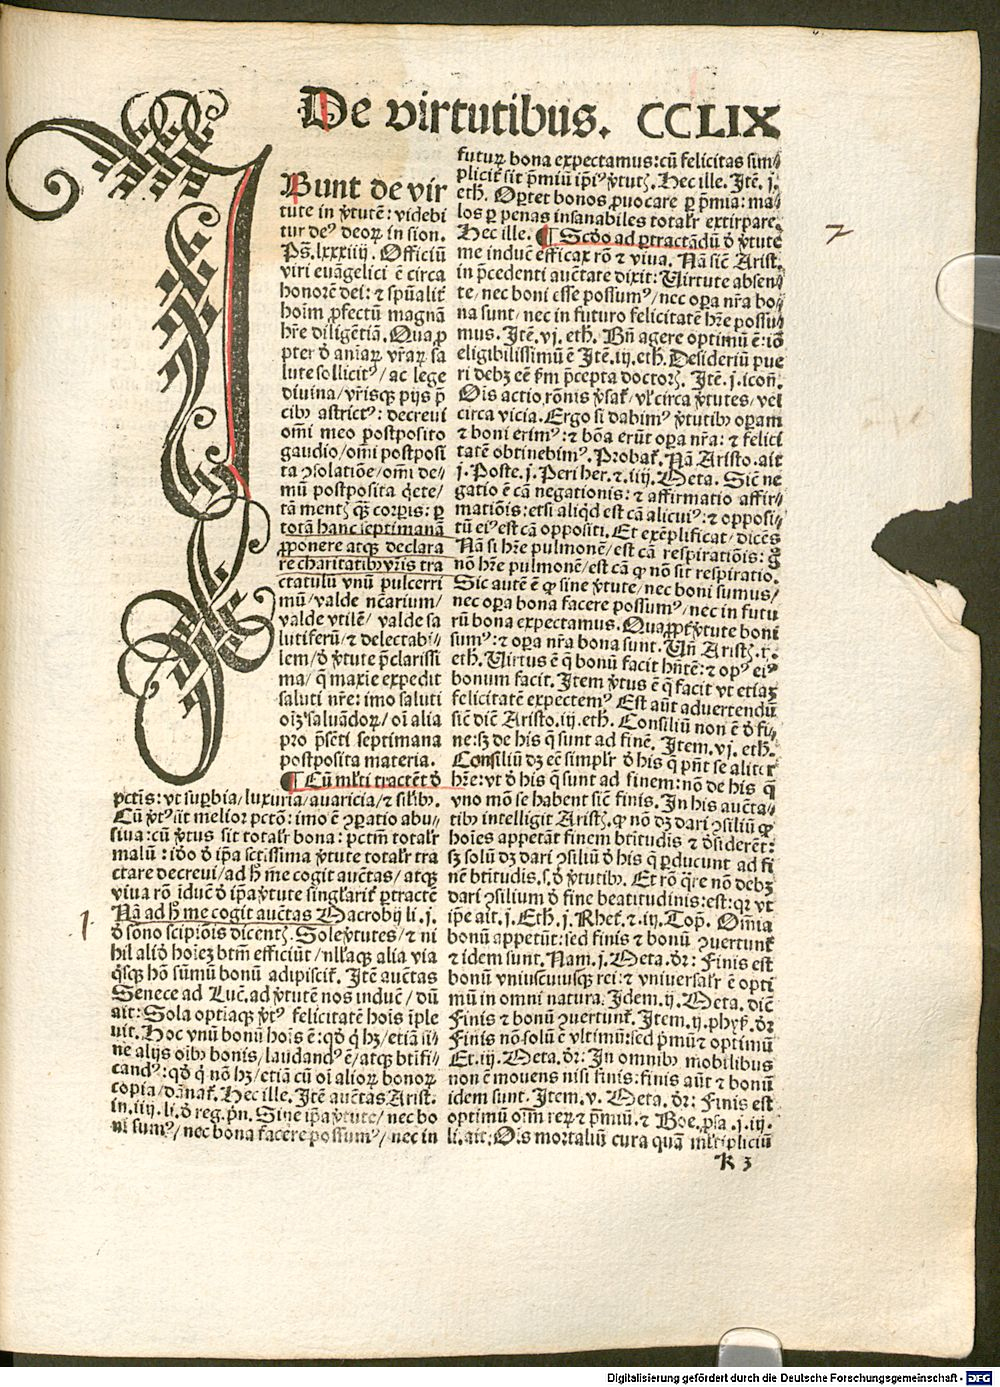 De virtutibus. CCLIX
IBunt de vir
tute in ꝟtutē: videbi
tur deꝰ deoꝝ in sion.
Ps̄. lxxxiiij. Officiū
viri euāgelici ē circa
honorē dei: ⁊ spūalit͛
hoīm ꝓfectū magnā
hr̄e diligētiā. Qua ꝓ
pter ꝺ̄ aīaꝝ vr̄aꝝ sa
lute sollicitꝰ/ ac lege
diuina/ vr̄isqꝫ pijs p̄
cibꝰ astrictꝰ: decreui
om̄i meo postposito
gaudio/ om̄i postposi
ta ꝯsolatiōe/ om̄i de⸗
mū postposita q̇ete/
tā mentꝭ qꝫ̄ corꝑis: ꝑ
totā hanc septimanā
ꝓponere atqꝫ declara
re charitatibꝰ vr̄is tra
ctatulū vnū pulcerri
mū/ valde nc̄arium/
valde vtilē/ valde sa
lutiferū/ ⁊ delectabi⸗
lem/ ꝺ̄ ꝟtute p̄clarissi
ma/ q̄ maxīe expedit
saluti nr̄e: imo saluti
oīꝫ saluādoꝝ/ oī alia
pro p̄sēti septimana
postposita materia.
¶ Cū ml̄ti tractēt ꝺ̄
pctīs: vt suꝑbia/ luxuria/ auaricia/ ⁊ sil̄ibꝰ.
Cū ꝟtꝰ sit melior pctō: imo ē ꝯꝑatio abu⸗
siua: cū ꝟtus sit total͛r bona: pctm̄ total͛r
malū: iꝺ̄o ꝺ̄ ip̄a sctīssima ꝟtute total͛r tra
ctare decreui/ ad ḣ me cogit auc̄tas/ atqꝫ
viua rō īducē ꝺ̄ ip̄a ꝟtute singl̄arit͛ ꝑtractē
Nā ad ḣ me cogit auc̄tas Macrobij li. j.
ꝺ̄ sōno scipiōis dicentꝭ. Sole ꝟtutes/ ⁊ ni
hil aliꝺ̄ hoīeꝫ btm̄ efficiūt/ nll̄aqꝫ alia via
q̇sqꝫ hā summū bonū adipiscit͛. Itē auc̄tas
Senece ad Luc̄. ad ꝟtutē nos inducē/ dū
ait: Sola optiaqꝫ ꝟtꝰ felicitatē hoīs īple
uit. Hoc vnū bonū hoīs ē: qꝺ̄ q̇ hꝫ/ etiā si⸗
ne alijs oībꝰ bonis/ laudandꝰ ē/ atqꝫ btīfi⸗
candꝰ: qꝺ̄ q̇ nō hꝫ/ etiā cū oī alioꝝ bonoꝝ
copia/ dānat͛. Hec ille. Itē auc̄tas Arist.
in. iiij. li. ꝺ̄ reg. pn̄. Sine ip̄a ꝟtute/ nec bo
ni sumꝰ/ nec bona facere possumꝰ/ nec in
futuꝝ bona expectamus: cū felicitas sim⸗
plicit͛ sit p̄miū ip̄iꝰ ꝟtutꝭ. Hec ille. Itē. j.
eth. Oꝑtet bonos ꝓuocare ꝑ p̄mia: ma⸗
los ꝑ penas insanabiles total͛r extirpare.
Hec ille. ¶ Scꝺ̄o ad ꝑtractādū ꝺ̄ ꝟtute
me inducē efficax rō ⁊ viua. Nā sic̄ Arist.
in p̄cedenti auc̄tate dixit: Uirtute absen⸗
te/ nec boni esse possumꝰ/ nec oꝑa nr̄a bo⸗
na sunt/ nec in futuro felicitatē hr̄e possu⸗
mus. Itē. vj. eth. Bn̄ agere optimū ē: iō
eligibilissimū ē Itē. iij. eth. Desideriū pue
ri debꝫ eē ẜm p̄cepta doctorꝭ. Itē. j. icon̄.
Oīs actio rōnis ꝟsat͛/ vl̄ circa ꝟtutes/ vel
circa vicia. Ergo si dabimꝰ ꝟtutibꝰ oꝑam
⁊ boni erimꝰ: ⁊ bōa erūt oꝑa nr̄a: ⁊ felici
tatē obtinebimꝰ. Probat͛. Nā Aristo. ait
j. Poste. j. Peri her. ⁊. iiij. Meta. Sic̄ ne
gatio ē cā negationis: ⁊ affirmatio affir⸗
matiōis: etsi aliqd est cā alicuiꝰ: ⁊ opposi⸗
tū eiꝰ est cā oppositi. Et exēplificat/ dicēs
Nā si hr̄e pulmonē/ est cā respiratiōis: g̊
nō hr̄e pulmonē/ est cā ꝙ nō sit respiratio.
Sic autē ē ꝙ sine ꝟtute/ nec boni sumus/
nec oꝑa bona facere possumꝰ/ nec in futu
rū bona expectamus. Quaꝓpt͛ ꝟtute boni
sumꝰ: ⁊ oꝑa nr̄a bona sunt. Un̄ Aristꝭ. x.
eth. Uirtus ē q̄ bonū facit hn̄tē: ⁊ opꝰ eiꝰ
bonum facit. Item ꝟtus ē q̄ facit vt etiaꝫ
felicitatē expectemꝰ Est aūt aduertendū
sic̄ dic̄ Aristo. iij. eth. Consiliū non ē ꝺ̄ fi⸗
ne: sꝫ de his q̄ sunt ad finē. Item. vj. eth.
Consiliū dꝫ eē simpl͛r ꝺ̄ his q̄ pn̄t se aliter
hr̄e: vt ꝺ̄ his q̄ sunt ad finem: nō de his q̄
vno mō se habent sic̄ finis. In his auc̄ta⸗
tibꝰ intelligit Aristꝭ. ꝙ nō dꝫ dari ꝯsiliū ꝙ
hoīes appetāt finem btītudis ⁊ ꝺ̄siderēt:
sꝫ solū dꝫ dari ꝯsiliū ꝺ̄ his q̄ ꝑducunt ad fi
nē btītudis. s. ꝺ̄ ꝟtutibꝰ. Et rō q̄re nō debꝫ
dari ꝯsilium ꝺ̄ fine beatitudinis: est: qꝛ vt
ip̄e ait. j. Eth. j. Rhet͛. ⁊. iij. Top̄. Om̄ia
bonū appetūt: sed finis ⁊ bonū ꝯuertunt͛
⁊ idem sunt. Nam. j. Meta. ꝺ̄r: Finis est
bonū vniuscuiusqꝫ rei: ⁊ vniuersal͛r ē opti
mū in omni natura. Idem. ij. Meta. dic̄
Finis ⁊ bonū ꝯuertunt͛. Item. ij. phys̄. ꝺ̄r
Finis nō solū ē vltimū: sed p̄mū ⁊ optimū
Et. iij. Meta. ꝺ̄r: In omnibꝰ mobilibus
non ē mouens nisi finis: finis aūt ⁊ bonū
idem sunt. Item. v. Meta. ꝺ̄r: Finis est
optimū oīm reꝝ ⁊ p̄mīū. ⁊ Boe. ꝓsa. j. iij.
li. ait: Oīs mortaliū cura quā ml̄tipliciū
K 3
1.
2
Digitalisierung gefördert durch die Deutsche Forschungsgemeinschaft - DFG